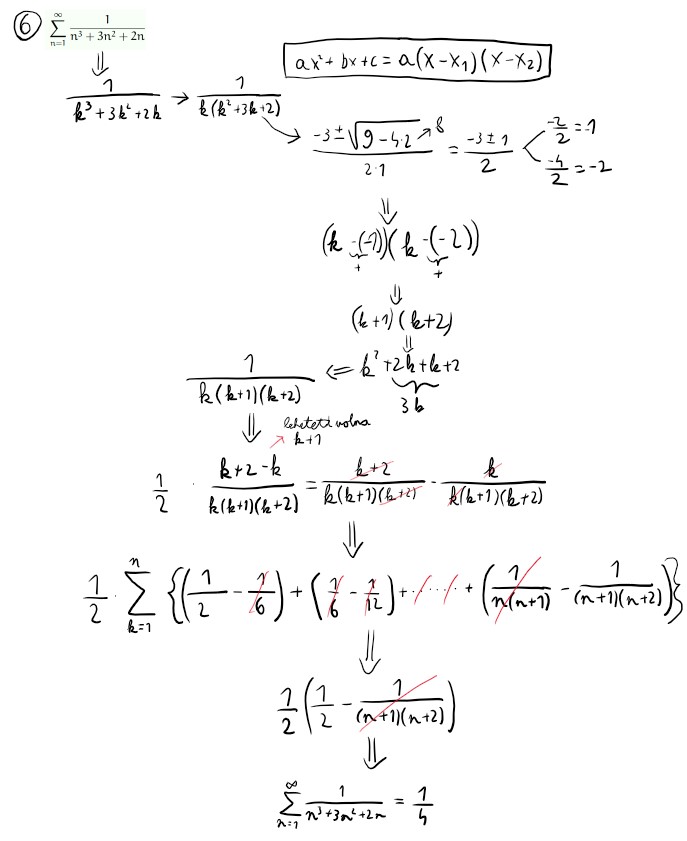 ⑥ ∑_{n=1}^{∞} 1/(n³ + 3n² + 2n)
ax² + bx + c = a(x-x₁)(x-x₂)
⇓
1/(k³ + 3k² + 2k) → 1/(k(k² + 3k + 2))
(-3 ± √(9 - 4·2))/(2·1) = (-3 ± 1)/2 < -2/2 = -1
8
-4/2 = -2
⇓
(k -(-1))(k -(-2))
+ +
⇓
(k+1)(k+2)
⇓
1/(k(k+1)(k+2)) ⇐ k² + 2k + k + 2
3k
⇓ lehetett volna
k+1
1/2 · (k+2-k)/(k(k+1)(k+2)) = (k+2)/(k(k+1)(k+2)) - k/(k(k+1)(k+2))
⇓
1/2 · ∑_{k=1}^{n} {(1/2 - 1/6) + (1/6 - 1/12) + ...... + (1/(n(n+1)) - 1/((n+1)(n+2)))}
⇓
1/2 (1/2 - 1/((n+1)(n+2)))
⇓
∑_{n=1}^{∞} 1/(n³ + 3n² + 2n) = 1/4